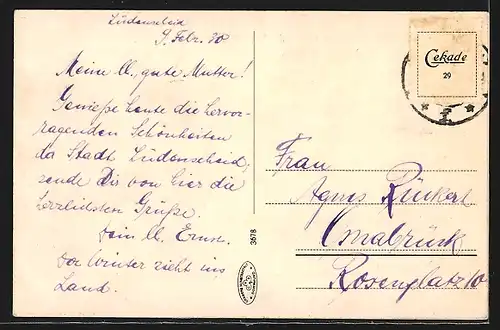 Lüdenscheid
9. Febr. 30
Meine ll., gute Mutter!
Genieße heute die hervor-
ragenden Schönheiten
der Stadt Lüdenscheid,
sende Dir von hier die
herzlichsten Grüße.
Dein ll. Ernst.
Der Winter zieht ins
Land.
Cekade
29
Frau
Agnes Rückert
Osnabrück
Rosenplatz 10
3678